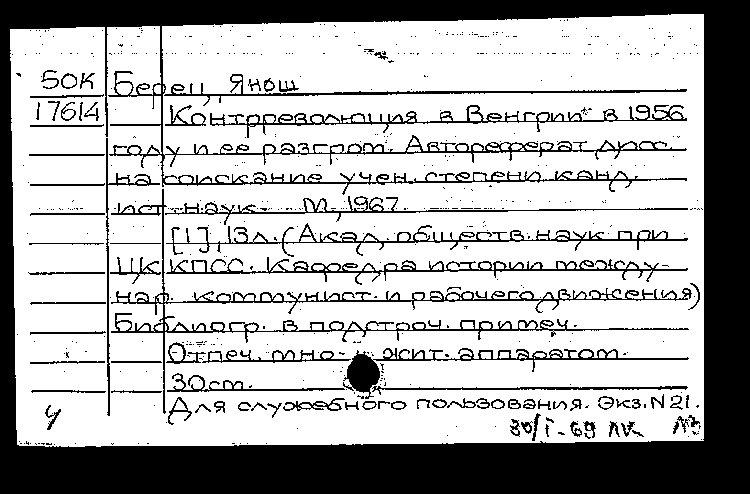 БОК Берец, Янош
17614 Контрреволюция в Венгрии в 1956
году и ее разгром. Автореферат дисс.
на соискание учен. степени канд.
ист. наук. М., 1967.
[1], 13л. (Акад. обществ. наук при
ЦК КПСС. Кафедра истории между-
нар. коммунист. и рабочего движения)
Библиогр. в подстроч. примеч.
Отпеч. множит. аппаратом.
30см.
Для служебного пользования. Экз. N 21.
30/I-69